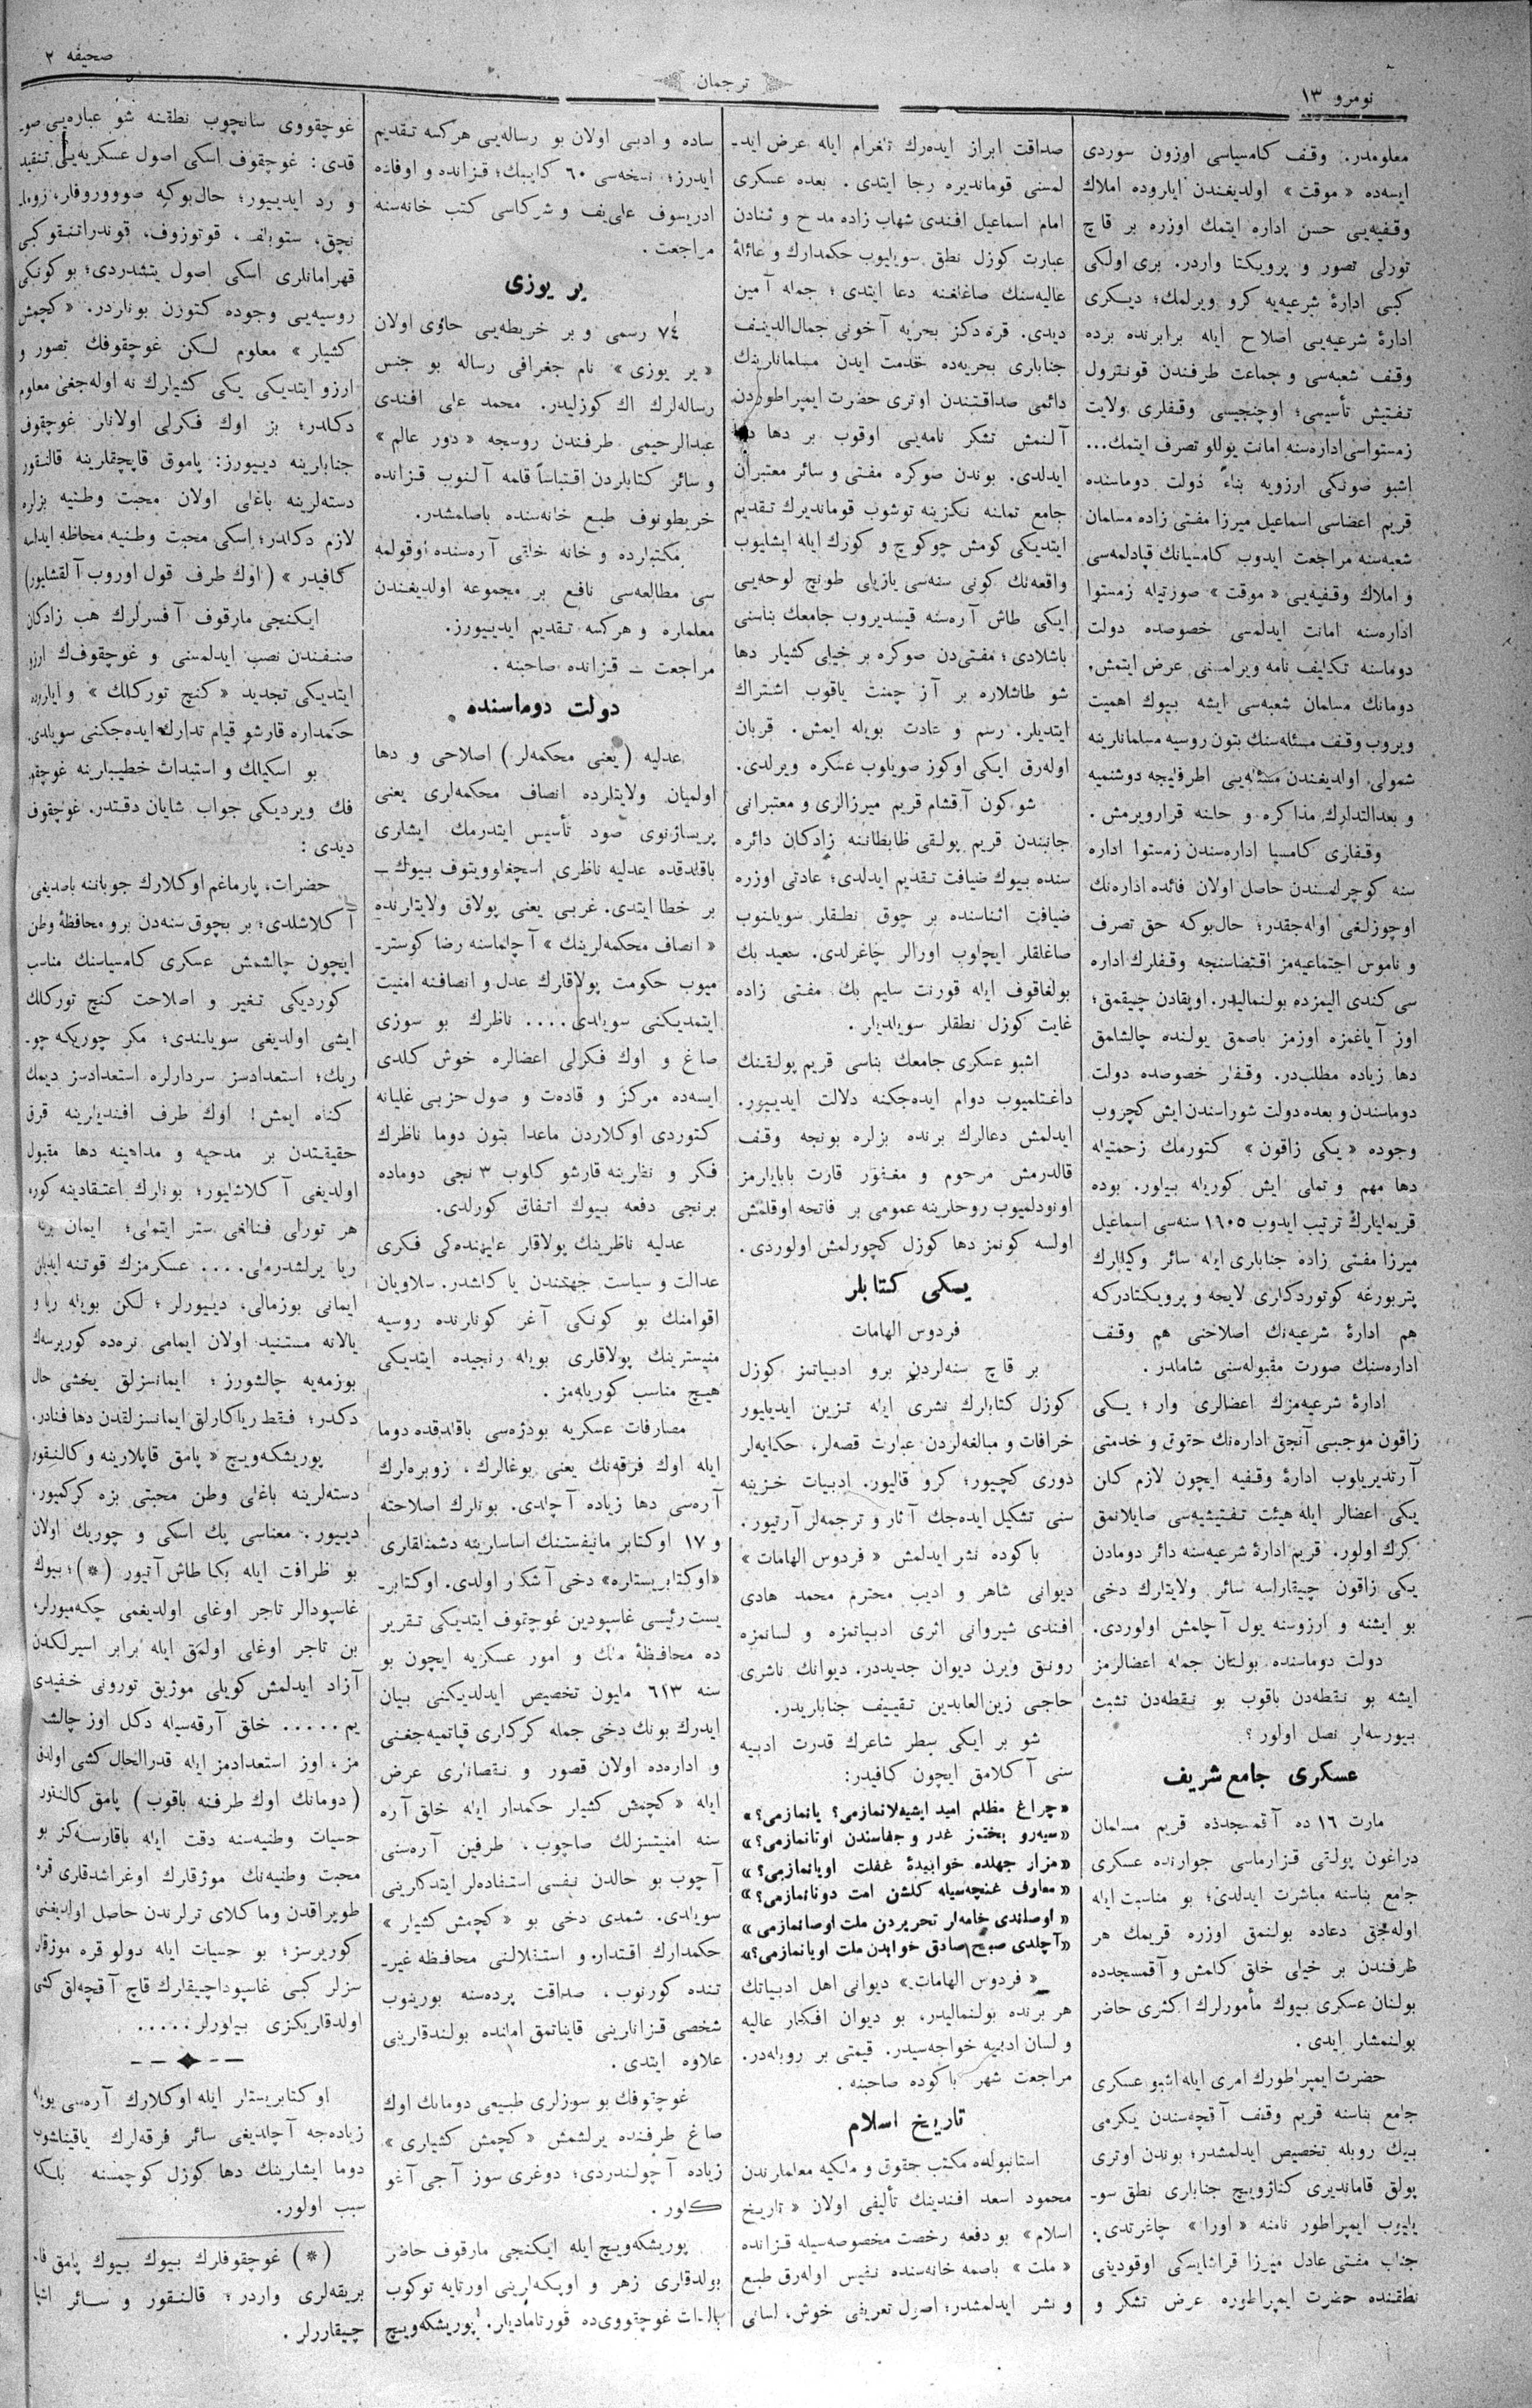 نومرو ۱۳
ترجمان
صحیفه ۲
معلومدر. وقف كامسیاسی اوزون سوردی
ایسه‌ده «موقت» اولدیغندن ایلروده املاك
وقفیه‌یی حسن اداره ایتمك اوزره بر قاچ
تورلی تصور و پرویكتا واردر. بری اولكی
كبی ادارۀ شرعیه‌یه كرو ویرلمك؛ دیكری
ادارۀ شرعیه‌یی اصلاح ایله برابرنده برده
وقف شعبه‌سی و جماعت طرفندن قونترول
تفتیش تأسیسی؛ اوچنجیسی وقفلری ولایت
زمستواسی اداره‌سنه امانت یوللو تصرف ایتمك...
اشبو صوڭكی آرزویه بناءً دولت دوماسنده
قریم اعضاسی اسماعیل میرزا مفتی زاده مسلمان
شعبه‌سنه مراجعت ایدوب كامسیانك قپادلمه‌سی
و املاك وقفیه‌یی «موقت» صورتیله زمستوا
اداره‌سنه امانت ایدلمسی خصوصده دولت
دوماسنه تكلیف نامه ویرلمسنی عرض ایتمش.
دومانك مسلمان شعبه‌سی ایشه بیوك اهمیت
ویروب وقف مسئله‌سنك بتون روسیه مسلمانلرینه
شمولی اولدیغندن مسئله‌یی اطرفلیجه دوشنمیه
و بعدالتدارك مذاكره و حلنه قرارویرمش.
وقفلری كامسیا اداره‌سندن زمستوا اداره
سنه كوچرلمسندن حاصل اولان فائده اداره‌نك
اوجوزلغی اوله‌جقدر؛ حال‌بوكه حق تصرف
و ناموس اجتماعیه‌مز اقتضاسنجه وقفلرك اداره
سی كندی الیمزده بولنمالیدر. اویقادن چیقمق؛
اوز آیاغمزه اوزمز باصمق یولنده چالشمق
دها زیاده مطلب‌در. وقفلر خصوصده دولت
دوماسندن و بعده دولت شوراسندن ایش كچروب
وجوده «یكی زاقون» كتورمك زحمتیله
دها مهم و تملی ایش كوریله بیلور. بوده
قریملیلرك ترتیب ایدوب ۱٩۰٥ سنه‌سی اسماعیل
میرزا مفتی زاده جنابلری ایله سائر وكیللرك
پتربورغه كوتوردكلری لایحه و پرویكتادركه
هم ادارۀ شرعیه‌نك اصلاحنی هم وقف
اداره‌سنك صورت مقبوله‌سنی شاملدر.
ادارۀ شرعیه‌مزك اعضالری وار؛ یكی
زاقون موجبی آنجق اداره‌نك حقوق و خدمتی
آرتدیریلوب ادارۀ وقفیه ایچون لازم كلن
یكی اعضالر ایله هیئت تفتیشیه‌سی صایلانمق
كرك اولور. قریم ادارۀ شرعیه‌سنه دائر دومادن
یكی زاقون چیقارلسه سائر ولایتلرك دخی
بو ایشنه و آرزوسنه یول آچلمش اولوردی.
دولت دوماسنده بولنان جمله اعضالرمز
ایشه بو نقطه‌دن باقوب بو نقطه‌دن تشبث
بیورسه‌لر نصل اولور؟
عسكری جامع شریف
مارت ۱٦ ده آقمسجدده قریم مسلمان
دراغون پولقی قزارماسی جوارنده عسكری
جامع بناسنه مباشرت ایدلدی؛ بو مناسبت ایله
اوله‌جق دعاده بولنمق اوزره قریمك هر
طرفندن بر خیلی خلق كلمش و آقمسجدده
بولنان عسكری بیوك مأمورلرك اكثری حاضر
بولنمشلر ایدی.
حضرت ایمپراطورك امری ایله اشبو عسكری
جامع بناسنه قریم وقف آقچه‌سندن یكرمی
بیك روبله تخصیص ایدلمشدر؛ بوندن اوتری
پولق قاماندیری كنازویچ جنابلری نطق سو-
یلیوب ایمپراطور نامنه «اورا» چاغرتدی.
جناب مفتی عادل میرزا قراشایسكی اوقودیغی
نطقنده حضرت ایمپراطوره عرض تشكر و
صداقت ابراز ایده‌رك تلغرام ایله عرض اید-
لمسنی قومانديره رجا ایتدی. بعده عسكری
امام اسماعیل افندی شهاب زاده مدح و ثنادن
عبارت كوزل نطق سویلیوب حكمدارك و عائلۀ
عالیه‌سنك صاغلغنه دعا ایتدی؛ جمله آمین
دیدی. قره‌دكز بحریه آخونی جمال‌الدینف
جنابلری بحریه‌ده خدمت ایدن مسلمانلرینك
دائمی صداقتندن اوتری حضرت ایمپراطوردن
آلنمش تشكر نامه‌یی اوقوب بر دها دعا
ایدلدی. بوندن صوكره مفتی و سائر معتبران
جامع تملنه نكزینه توشوب قومانديرك تقدیم
ایتدیكی كومش چوكوچ و كورك ایله ایشلیوب
واقعه‌نك كونی سنه‌سی یازیلی طونچ لوحه‌یی
ایكی طاش آره‌سنه قیسدیروب جامعك بناسنی
باشلادی؛ مفتی‌دن صوكره بر خیلی كشیلر دها
شو طاشلاره بر آز چمنت یاقوب اشتراك
ایتدیلر. رسم و عادت بویله ایمش. قربان
اوله‌رق ایكی اوكوز صویلوب عسكره ویرلدی.
شو كون آقشام قریم میرزالری و معتبرانی
جانبندن قریم پولقی ظابطاننه زادكان دائره
سنده بیوك ضیافت تقدیم ایدلدی؛ عادتی اوزره
ضیافت اثناسنده بر چوق نطقلر سویلنوب
صاغلقلر ایچلوب اورالر چاغرلدی. سعید بك
بولغاقوف ایله قورنت سلیم بك مفتی زاده
غایت كوزل نطقلر سویلدیلر.
اشبو عسكری جامعك بناسی قریم پولقنك
داغتلمیوب دوام ایده‌جكنه دلالت ایدییور.
ایدلمش دعالرك برنده بزلره بونجه وقف
قالدرمش مرحوم و مغفور قارت بابایلرمز
اونودلمیوب روحلرینه عمومی بر فاتحه اوقلمش
اولسه كونمز دها كوزل كچورلمش اولوردی.
یـكی كتابلر
فردوس الهامات
بر قاچ سنه‌لردن برو ادبیاتمز كوزل
كوزل كتابلرك نشری ایله تزین ایدیلیور
خرافات و مبالغه‌لردن عبارت قصه‌لر، حكایه‌لر
دوری كچیور؛ كرو قالیور. ادبیات خزینه
سنی تشكیل ایده‌جك آثار و ترجمه‌لر آرتیور.
باكوده نشر ایدلمش «فردوس الهامات»
دیوانی شاعر و ادیب محترم محمد هادی
افندی شیروانی اثری ادبیاتمزه و لسانمزه
رونق ویرن دیوان جدیددر. دیوانك ناشری
حاجی زین‌العابدین تقییف جنابلریدر.
شو بر ایكی سطر شاعرك قدرت ادبیه
سنی آكلامق ایچون كافیدر:
«چراغ مظلم امید ایشیه‌لانمازمی؟ یانمازمی؟»
«سیه‌رو بختمز غدر و جفاسندن اوتانمازمی؟»
«مزار جهلده خوابیدۀ غفلت اویانمازمی؟»
«معارف غنچه‌سیله كلشن امت دونانمازمی؟»
«اوصاندی خامه‌لر تحریردن ملت اوصانمازمی»
«آچلدی صبح صادق خوابدن ملت اویانمازمی؟»
«فردوس الهامات» دیوانی اهل ادبیاتك
هر برنده بولنمالیدر، بو دیوان افكار عالیه
و لسان ادبیه خواجه‌سیدر. قیمتی بر روبله‌در.
مراجعت شهر باكوده صاحبنه.
تاریخ اسلام
استانبولده مكتب حقوق و ملكیه معلملرندن
محمود اسعد افندینك تألیفی اولان «تاریخ
اسلام» بو دفعه رخصت مخصوصه‌سیله قزانده
«ملت» باصمه خانه‌سنده نفیس اوله‌رق طبع
و نشر ایدلمشدر؛ اصول تعریفی خوش، لسانی
ساده و ادبی اولان بو رساله‌یی هركسه تقدیم
ایدرز؛ نسخه‌سی ٦۰ كاپیك؛ قزانده و اوفاده
ادریسوف علی‌یف و شركاسی كتب خانه‌سنه
مراجعت.
یر یوزی
۷٤ رسمی و بر خریطه‌یی حاوی اولان
«یر یوزی» نام جغرافی رساله بو جنس
رساله‌لرك اك كوزلیدر. محمد علی افندی
عبدالرحیمی طرفندن روسجه «دور عالم»
و سائر كتابلردن اقتباساً قلمه آلنوب قزانده
خریطونوف طبع خانه‌سنده باصلمشدر.
مكتبلرده و خانه خلقی آره‌سنده اوقولمه
سی مطالعه‌سی نافع بر مجموعه اولدیغندن
معلملره و هركسه تقدیم ایدییورز.
مراجعت ــ قزانده صاحبنه.
دولت دوماسنده
عدلیه (یعنی محكمه‌لر) اصلاحی و دها
اولمیان ولایتلرده انصاف محكمه‌لری یعنی
پریساژنوی صود تأسیس ایتدرمك ایشلری
باقلدقده عدلیه ناظری اسچغلوویتوف بیوك ــ
بر خطا ایتدی. غربی یعنی پولاق ولایتلرنده
«انصاف محكمه‌لرینك» آچلماسنه رضا كوستر-
میوب حكومت پولاقلرك عدل و انصافنه امنیت
ایتمدیكنی سویلدی.... ناظرك بو سوزی
صاغ و اوك فكرلی اعضالره خوش كلدی
ایسه‌ده مركز و قاده‌ت و صول حزبی غلیانه
كتوردی اوكلاردن ماعدا بتون دوما ناظرك
فكر و نظرینه قارشو كلوب ۳ نجی دوماده
برنجی دفعه بیوك اتفاق كورلدی.
عدلیه ناظرینك پولاقلر علیهنده‌كی فكری
عدالت و سیاست جهتندن یاكلشدر. سلاویان
اقوامنك بو كونكی آغر كونلرنده روسیه
منیسترینك پولاقلری بویله رنجیده ایتدیكی
هیچ مناسب كوریله‌مز.
مصارفات عسكریه بودژه‌سی باقلدقده دوما
ایله اوك فرقه‌نك یعنی بوغالرك، زوبره‌لرك
آره‌سی دها زیاده آچلدی. بونلرك اصلاحته
و ۱۷ اوكتابر مانیفستنك اساسلرینه دشمنلقلری
«اوكتابریستلره» دخی آشكار اولدی. اوكتابر-
یست رئیسی غاسپودین غوچقوف ایتدیكی تقریر
ده محافظۀ ملك و امور عسكریه ایچون بو
سنه ٦۱۳ ملیون تخصیص ایدلدیكنی بیان
ایدرك بونك دخی جمله كركلری قپاتمیه‌جغنی
و اداره‌ده اولان قصور و نقصانلری عرض
ایله «كچمش كشیلر حكمدار ایله خلق آره
سنه امنیتسزلك صاچوب، طرفین آره‌سنی
آچوب بو حالدن نفسی استفاده‌لر ایتدكلرینی
سویلدی. شمدی دخی بو «كچمش كشیلر»
حكمدارك اقتدار و استقلالنی محافظه غیر-
تنده كورنوب، صداقت پرده‌سنه بورینوب
شخصی قزانلرینی قایناتمق املنده بولندقلرینی
علاوه ایتدی.
غوچقوفك بو سوزلری طبیعی دومانك اوك
صاغ طرفنده یرلشمش «كچمش كشیلری»
زیاده آچولندردی؛ دوغری سوز آجی آغو
كلور.
پوریشكه‌ویچ ایله ایكنجی مارقوف حاضر
بولدقلری زهر و اوپكه‌لرینی اورتایه توكوب
غوچقووی‌ده قورتامادیلر. پوریشكه‌ویچ
غوچقووی سانچوب نطقنه شو عباره‌یی صو-
قدی: غوچقوف اسكی اصول عسكریه‌یی تنقید
و رد ایدییور؛ حال‌بوكه صووروفلر،
قوتوزوف، قوندراتنقو كبی
قهرمانلری اسكی اصول یتشدردی؛ بو كونكی
روسیه‌یی وجوده كتورن بونلردر. «كچمش
كشیلر» معلوم لكن غوچقوفك تصور و
آرزو ایتدیكی یكی كشیلرك نه اوله‌جغی معلوم
دكلدر؛ بز اوك فكرلی اولانلر غوچقوف
جنابلرینه دییورز: پاموق قاپچقلرینه قالنقور
دسته‌لرینه باغلی اولان محبت وطنیه بزلره
لازم دكلدر؛ اسكی محبت وطنیه محافظه ایداسه
كافیدر» (اوك طرف قول اوروب آلقشلیور)
ایكنجی مارقوف آفسرلرك هب زادكان
صنفندن نصب ایدلمسنی و غوچقوف‌ك آرزو
ایتدیكی تجدید «كنچ توركلك» و ایلروده
حكمداره قارشو قیام تدارك ایده‌جكنی سویلدی.
بو اسكیلك و استبدات خطیبلرینه غوچقو
فك ویردیكی جواب شایان دقتدر. غوچقوف
دیدی:
حضرات، پارماغم اوكلارك جوبانه باصدیغی
آكلاشلدی؛ بر بچوق سنه‌دن برو محافظۀ وطن
ایچون چالشمش عسكری كامسیاسنك مناسب
كوردیكی تغیر و اصلاحت كنچ توركلك
ایشی اولدیغی سویلندی؛ مكر چوریكه چو-
ریك؛ استعدادسز سردارلره استعدادسز دیمك
كناه ایمش! اوك طرف افندیلرینه قرق
حقیقتدن بر مدحیه و مداهینه دها مقبول
اولدیغی آكلاشلیور؛ بونلرك اعتقادینه كوره
هر تورلی فنالغی ستر ایتملی؛ ایمان یرینه
ریا یرلشدرملی.... عسكرمزك قوتنه ایدیلن
ایمانی بوزمالی، دییورلر؛ لكن بویله ریا و
یالانه مستنید اولان ایمامی نره‌ده كوریرسه‌ك
بوزمه‌یه چالشورز؛ ایمانسزلق یخشی حال
دكلدر؛ فقط ریاكارلق ایمانسزلقدن دها فنادر.
پوریشكه‌ویچ «پامق قاپلارینه و كالنقور
دسته‌لرینه باغلی وطن محبتی بزه كركمیور،
دییور. معناسی پك اسكی و چوریك اولان
بو ظرافت ایله بكا طاش آتیور (*)؛ بیوك
غاسپودالر تاجر اوغلی اولدیغمی چكه‌میورلر،
بن تاجر اوغلی اولمق ایله برابر اسیرلكدن
آزاد ایدلمش كویلی موژیق تورونی حفیدی
یم..... خلق آرقه‌سیله دكل اوز چالشمه
مز، اوز استعدادمز ایله قدرالحال كشی اولدق
(دومانك اوك طرفنه باقوب) پامق كالنقور
حسیات وطنیه‌سنه دقت ایله باقارسه‌كز بو
محبت وطنیه‌نك موژقلرك اوغراشدقلری قره
طوپراقدن وماكلای ترلرندن حاصل اولدیغنی
كوریرسز؛ بو حسیات ایله دولو قره موژقلر
سزلر كبی غاسپوداچیقلرك قاچ آقچه‌لق كشی
اولدقلریكزی بیلورلر.....
اوكتابریستلر ایله اوكلارك آره‌سی بویله
زیاده‌جه آچلدیغی سائر فرقه‌لرك یاقینلشوب
دوما ایشلرینك دها كوزل كوچمسنه بلكه
سبب اولور.
(*) غوچقوفلرك بیوك بیوك پامق فا-
بریقه‌لری واردر؛ قالنقور و سـائر اشیا
چیقاررلر.